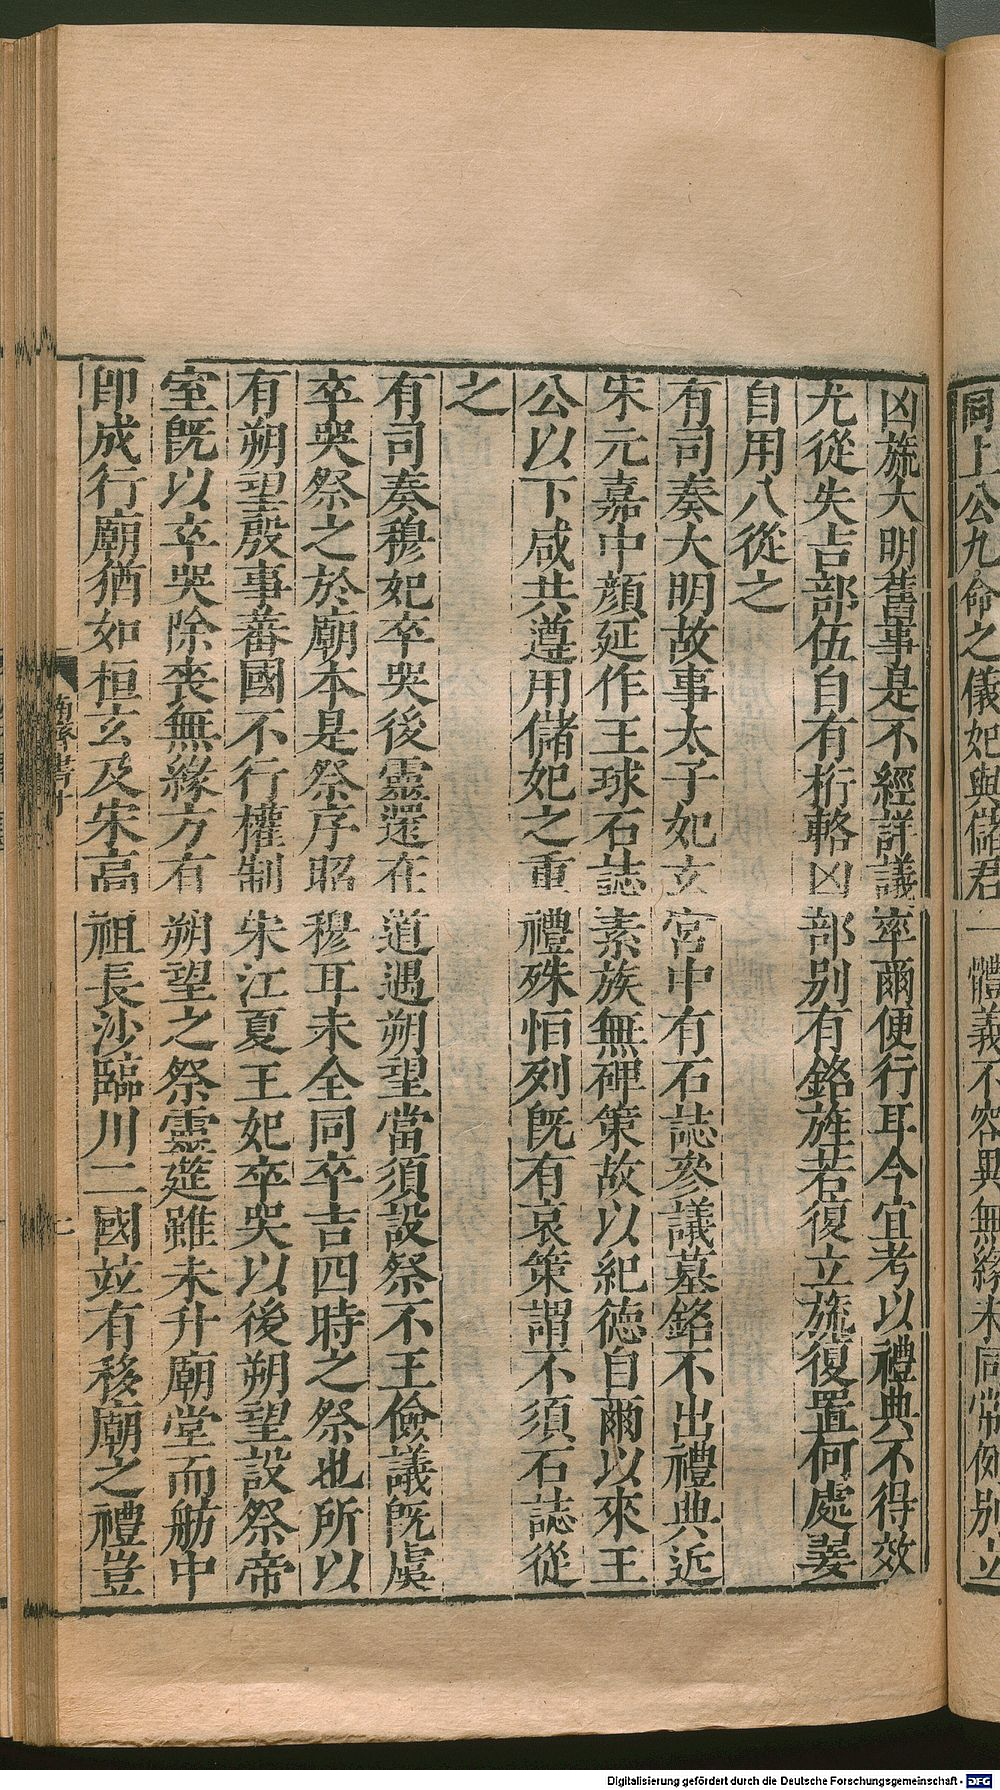 同上公九命之儀妃與儲君一體義不容異無緣未同常例別立
凶旒大明舊事是不經詳議率爾便行耳今宜考以禮典不得效
尤從失吉部伍自有桁輅凶部別有銘旌若復立旒復置何處翣
自用八從之
有司奏大明故事太子妃玄宮中有石誌參議墓銘不出禮典近
宋元嘉中顏延作王球石誌素族無碑策故以紀德自爾以來王
公以下咸共遵用儲妃之重禮殊恒列旣有哀策謂不須石誌從
之
有司奏穆妃卒哭後靈還在道遇朔望當須設祭不王儉議旣虞
卒哭祭之於廟本是祭序昭穆耳未全同卒吉四時之祭也所以
有朔望殷事蕃國不行權制宋江夏王妃卒哭以後朔望設祭帝
室旣以卒哭除喪無緣方有朔望之祭靈筵雖未升廟堂而舫中
卽成行廟猶如桓玄及宋高祖長沙臨川二國並有移廟之禮豈
南齊書十
Digitalisierung gefördert durch die Deutsche Forschungsgemeinschaft - DFG